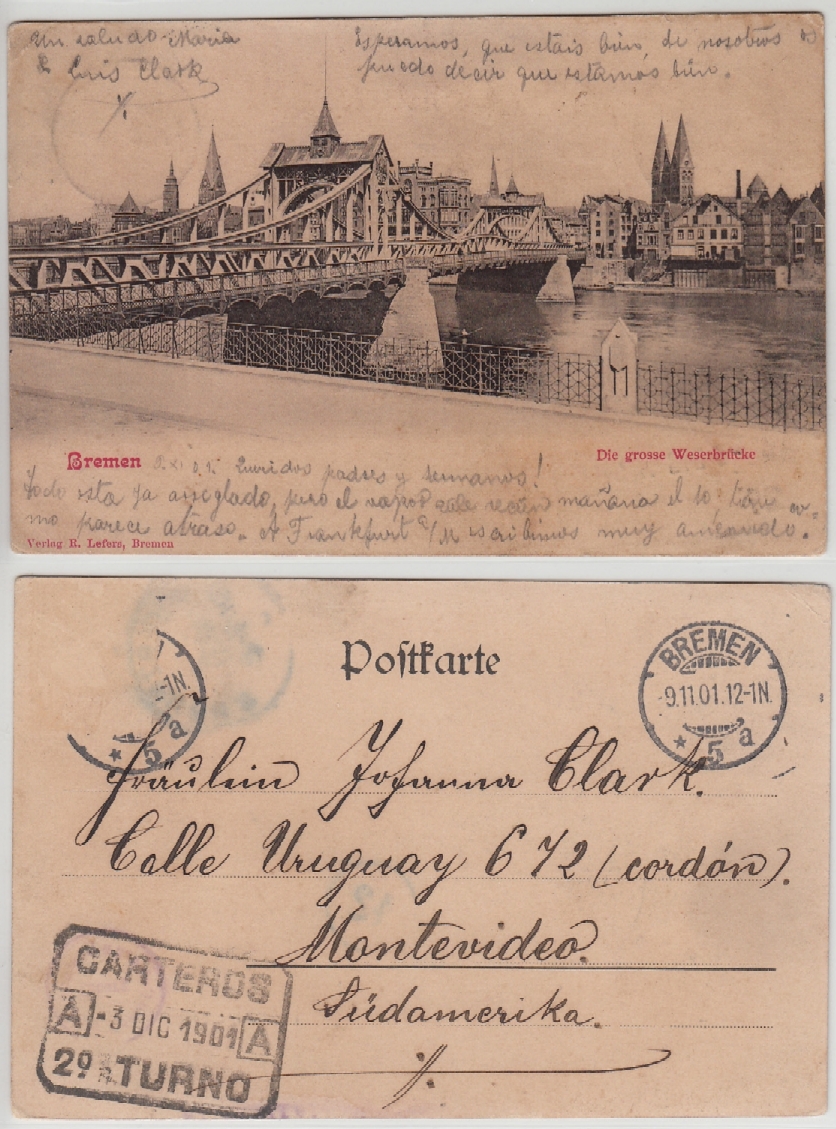 Un saludo Maria
Luis Clark
Esperamos, que estais bién, de nosotros os
puedo decir que estamos bién.
Bremen
Die grosse Weserbrücke
Queridos padres y hermanos!
Todo esta ya arreglado, pero el vapor sale recién mañana el 10,
parece atraso. A Frankfurt a/M escribimos muy
Verlag R. Lefers, Bremen
Postkarte
-1N.
5 a
BREMEN
-9.11.01.12-1N.
* 5 a
Fräulein Johanna Clark.
Calle Uruguay 672 (cordón).
Montevideo.
Südamerika.
CARTEROS
A -3 DIC 1901 A
2º TURNO